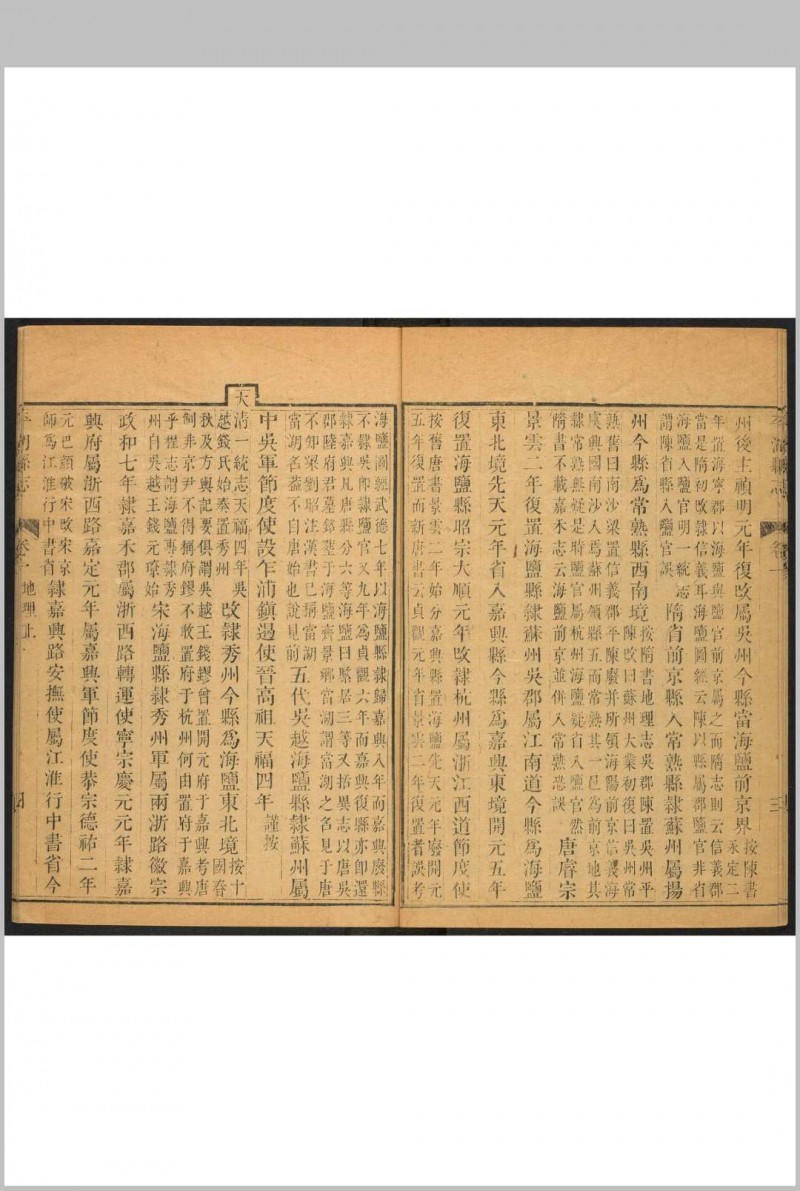 州後主禎明元年復改屬吳州今縣當海鹽前京界按陳書永定二
年置海寧郡以海鹽與鹽官前京屬之而隋志則云信義郡
當是隋初改隸信義耳海鹽圖經云陳以縣屬鹽官非省
海鹽入鹽官明一統志
謂陳省縣入鹽官誤
隋省前京縣入常熟縣隸蘇州屬揚
州今縣為常熟縣西南境按隋書地理志吳郡陳置吳州平
陳改曰蘇州大業初復曰吳州常
熟舊曰南沙梁置信義郡平陳廢并所領海陽前京信義海
虞興國南沙入焉蘇州領縣五而常熟其一已為前京地其
隸常熟無疑是時鹽官屬杭州海鹽疑省入鹽官然
隋書不載嘉禾志云海鹽前京並併入常熟恐誤
唐睿宗
景雲二年復置海鹽縣隸蘇州吳郡屬江南道今縣為海鹽
東北境先天元年省入嘉興縣今縣為嘉興東境開元五年
復置海鹽縣昭宗大順元年改隸杭州屬浙江西道節度使
按舊唐書景雲二年始分嘉興縣置海鹽先天元年廢開元
五年復置而新唐書云貞觀元年省景雲二年復置者誤考
平湖縣志
卷一
三
海鹽圖經武德七年以海鹽縣隸歸嘉興入年而嘉興廢縣
不隸吳即隸鹽官又九年為貞觀六年而嘉興縣亦即還
隸嘉興凡唐縣分六等海鹽曰緊居三等又括異志以唐吳
郡陸府君墓銘葬于海鹽齊景鄉當湖謂當湖之名見于唐
不知梁劉昭注漢書已稱當湖
當湖名蓋不自唐始也說見前
五代吳越海鹽縣隸蘇州屬
中吳軍節度使設乍浦鎮遏使晉高祖天福四年謹按
大清一統志天福四年吳
越錢氏始奏置秀州
改隸秀州今縣為海鹽東北境按十
國春
秋及方輿記要俱謂吳越王錢鏐曾置開元府于嘉興考唐
制非京尹不得稱府鏐不敢置府于杭州何由置府于嘉興
乎程志謂海鹽專隸秀
州自吳越王錢元瓘始
宋海鹽縣隸秀州軍屬兩浙路徽宗
政和七年隸嘉禾郡屬浙西路轉運使寧宗慶元元年隸嘉
興府屬浙西路嘉定元年屬嘉興軍節度使恭宗德祐二年
元巴顏破宋改宋京
師為江淮行中書省
隸嘉興路安撫使屬江淮行中書省今
平湖縣志
卷一 地理上
四